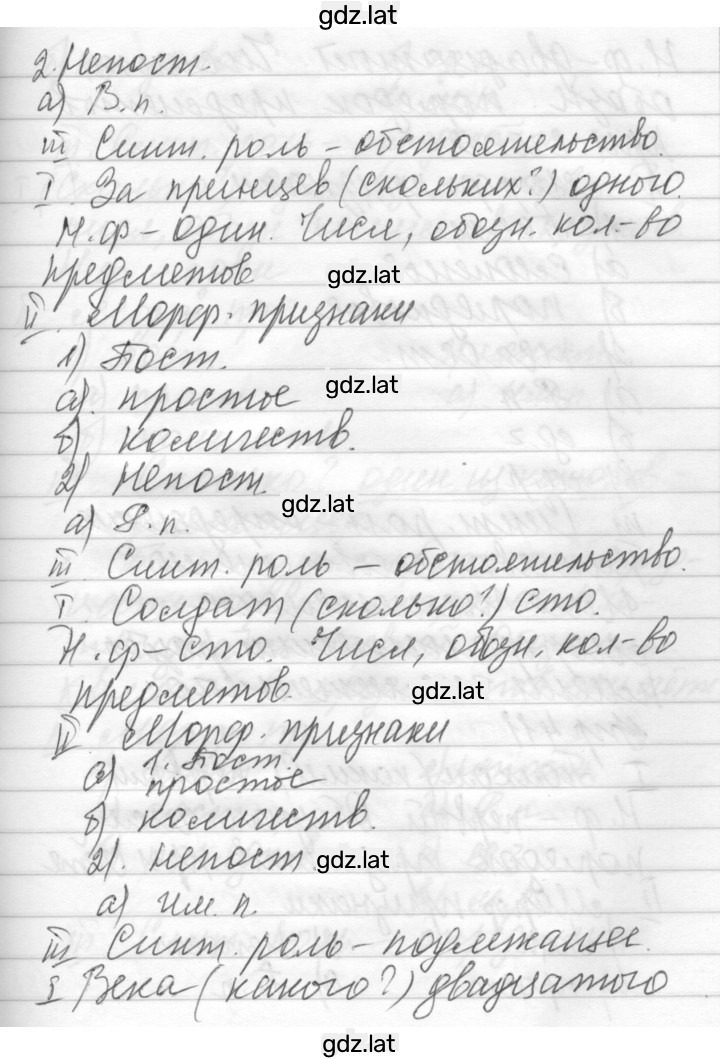 gdz.lat
2. Непост.
а) В.п.
III Синт. роль – обстоятельство.
I. За принцев (скольких?) одного.
Н.ф – один. Числ, обозн. кол-во
предметов
gdz.lat
II Морф. признаки
1) Пост.
а). простое
gdz.lat
б) количеств.
2) Непост.
gdz.lat
а) Р.п.
III. Синт. роль – обстоятельство.
I. Солдат (сколько?) сто.
Н.ф – сто. Числ, обозн. кол-во
предметов.
gdz.lat
II. Морф. признаки
1. Пост.
а) простое
б) количеств.
2). Непост.
gdz.lat
а) Им. п.
III Синт. роль – подлежащее.
I Века (какого?) двадцатого
gdz.lat